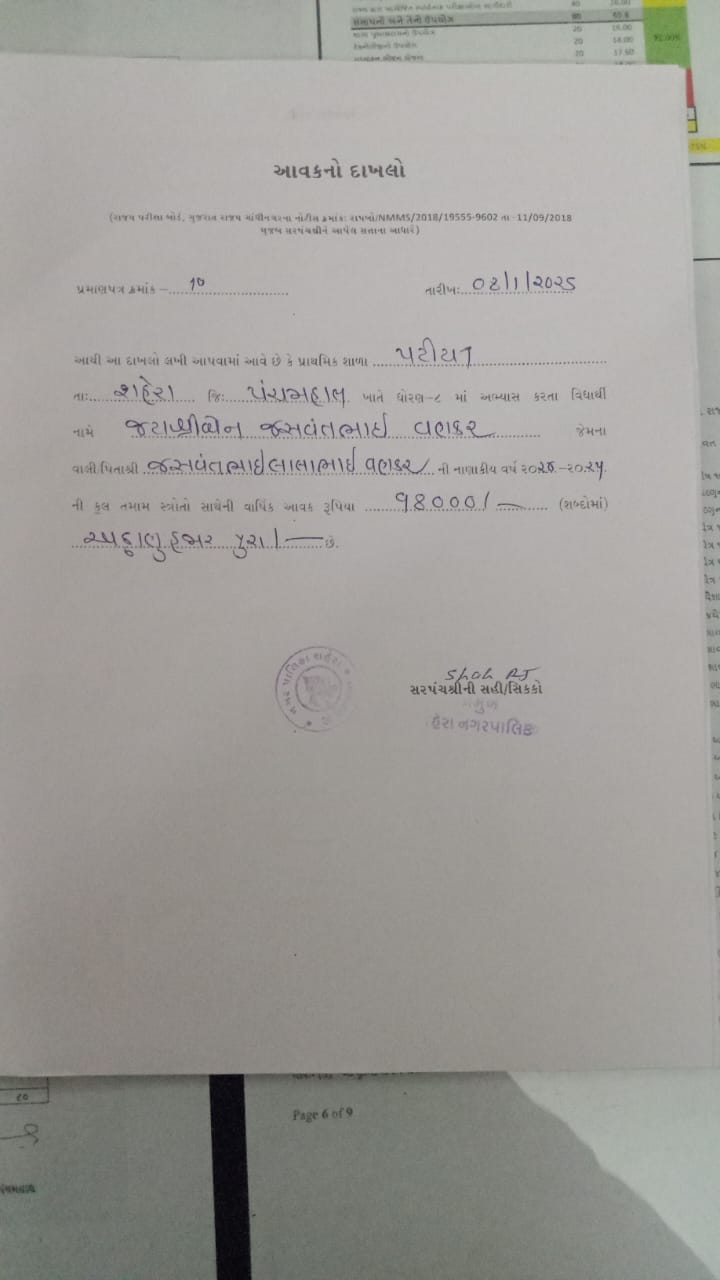 20
16.00
20
14.00
20
17.60
આવકનો દાખલો
(રાજ્ય પરીક્ષા બોર્ડ, ગુજરાત રાજ્ય ગાંધીનગરના નોટીસ ક્રમાંક: રાપબો/NMMS/2018/19555-9602 તા - 11/09/2018
મુજબ સરપંચશ્રીને આપેલ સત્તાના આધારે)
પ્રમાણપત્ર ક્રમાંક – 10
તારીખ: 02/1/૨૦૨૫
આથી આ દાખલો લખી આપવામાં આવે છે કે પ્રાથમિક શાળા પટીયા
તા: શહેરા જિ: પંચમહાલ ખાતે ધોરણ-૮ માં અભ્યાસ કરતા વિદ્યાર્થી
નામે જયાશ્રીબેન જસવંતભાઈ વણકર જેમના
વાલી/પિતાશ્રી જસવંતભાઈ લાલાભાઈ વણકર ની નાણાકીય વર્ષ ૨૦૨૪-૨૦૨૫
ની કુલ તમામ સ્ત્રોતો સાથેની વાર્ષિક આવક રૂપિયા ૧8000/- (શબ્દોમાં)
અઠ્ઠાણુ હજાર પુરા/- છે.
નગર પાલિકા શહેરા
સરપંચશ્રીની સહી/સિકકો
પ્રમુખ
હેરા નગરપાલિક
Page 6 of 9